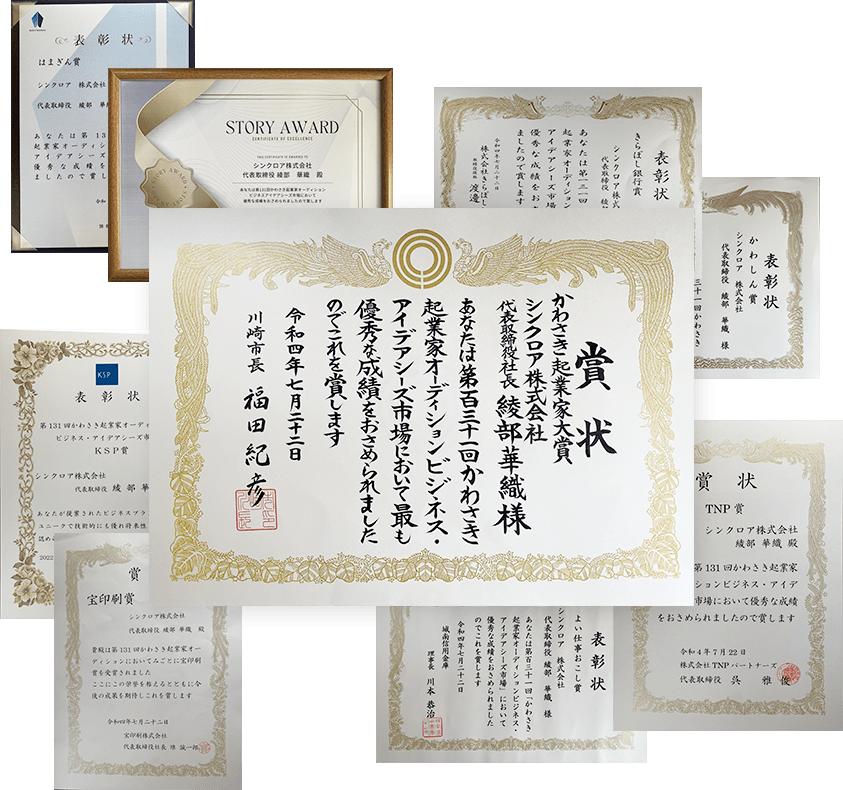 表彰状
はまぎん賞
シンクロア 株式会社
代表取締役 綾部 華
あなたは第131
起業家オーディシ
アイデアシーズ
優秀な成績を
ましたので賞し
令和
STORY AWARD
CERTIFICATE OF EXCELLENCE
THIS CERTIFICATE IS AWARDED TO
シンクロア株式会社
代表取締役 綾部 華織 殿
あなたは第131回かわさき起業家オーディション
ビジネスアイデアシーズ市場において
優秀な成績をおさめられましたので賞します
表彰状
きらぼし銀行賞
シンクロア株式
代表取締役 綾部
あなたは第一三一回
起業家オーディショ
アイデアシーズ市場
優秀な成績をおさ
ましたので賞します
令和四年七月二十二日
株式会社きらぼし
渡邊
表彰状
かわしん賞
シンクロア 株式会社
代表取締役 綾部 華織 様
三十一回かわさき
賞状
かわさき起業家大賞
シンクロア株式会社
代表取締役社長 綾部華織様
あなたは第百三十一回かわさき
起業家オーディションビジネス・
アイデアシーズ市場において最も
優秀な成績をおさめられました
のでこれを賞します
令和四年七月二十二日
川崎市長 福田紀彦
KSP
表彰状
第131回かわさき起業家オーデ
ビジネス・アイデアシーズ市
KSP賞
シンクロア株式会社
代表取締役 綾部 華
あなたが提案されたビジネスプラ
ユニークで技術的にも優れ将来性
認め
2022
賞
宝印刷賞
シンクロア株式会社
代表取締役 綾部 華織 殿
貴殿は第131回かわさき起業家オー
ディションにおいてみごとに宝印刷
賞を受賞されました
ここにこの栄誉を称えるとともに今
後の成果を期待しこれを賞します
令和四年七月二十二日
宝印刷株式会社
代表取締役社長 堆 誠一郎
表彰状
よい仕事おこし賞
シンクロア 株式会社
代表取締役 綾部 華織 様
あなたは第百三十一回「かわさき
起業家オーディションビジネス・
アイデアシーズ市場」において
優秀な成績をおさめられました
のでこれを賞します
令和四年七月二十二日
城南信用金庫
理事長 川本 恭治
賞状
TNP賞
シンクロア株式会社
綾部 華織 殿
第131回かわさき起業家
ションビジネス・アイデ
市場において優秀な成績
をおさめられましたので賞します
令和4年7月22日
株式会社TNPパートナーズ
代表取締役 呉 雅俊